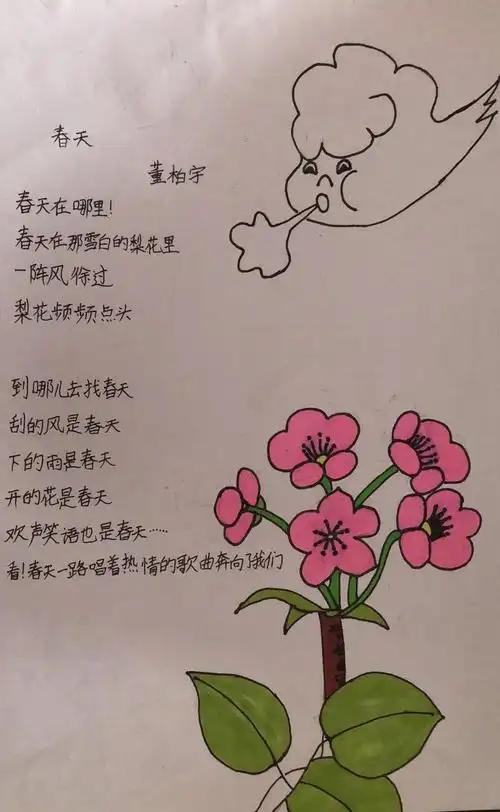 春天
董柏宇
春天在哪里！
春天在那雪白的梨花里
一阵风徐过
梨花频频点头
到哪儿去找春天
刮的风是春天
下的雨是春天
开的花是春天
欢声笑语也是春天……
看！春天一路唱着热情的歌曲奔向了我们